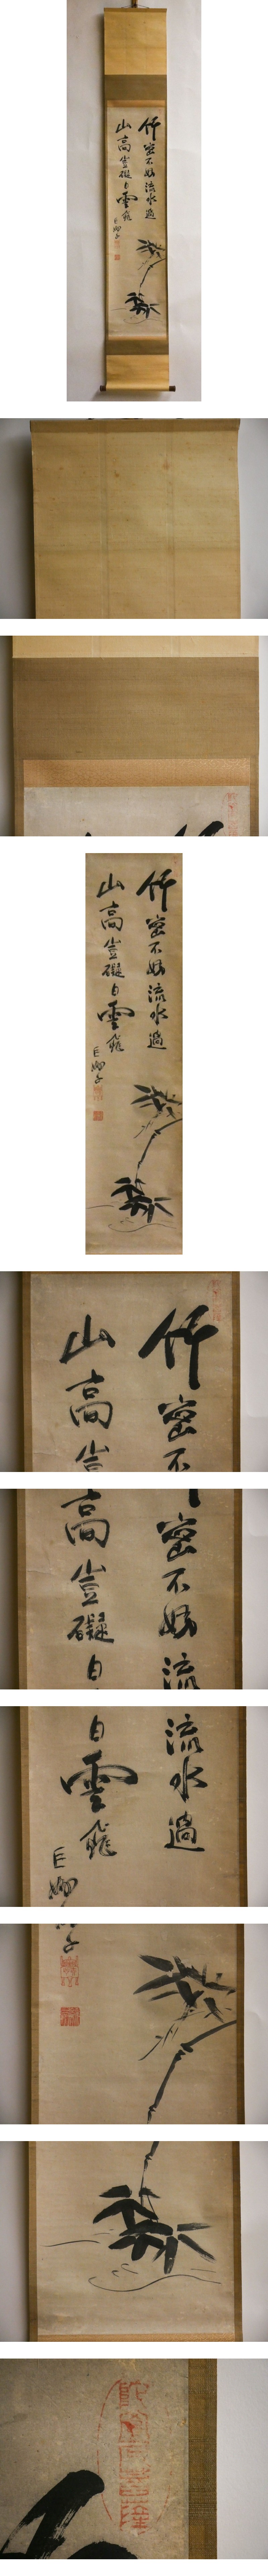 竹密不妨流水過
山高豈礙白雲飛